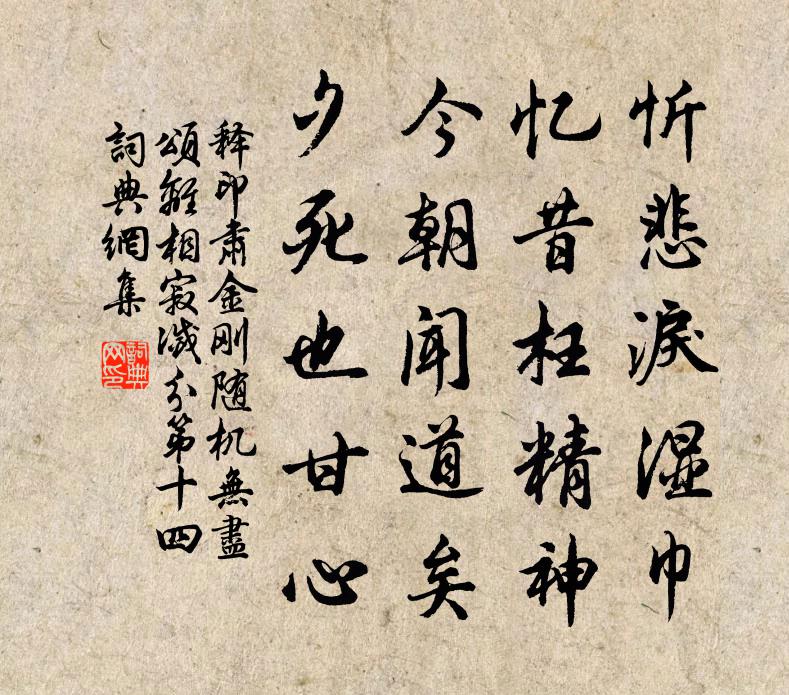 忻悲淚湿巾
忆昔枉精神
今朝闻道矣
夕死也甘心
释印肃金刚随机無盡
頌離相寂滅分第十四
詞典網集
詞典网印